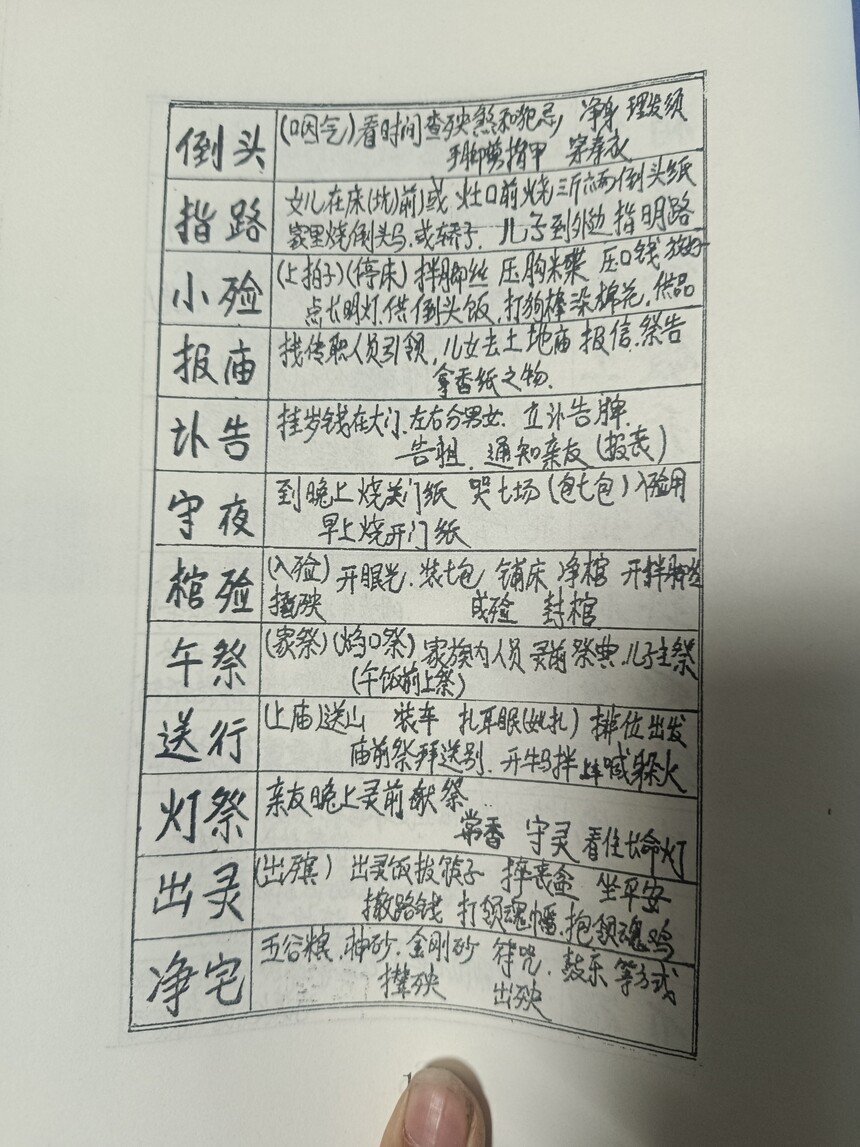 倒头
(咽气)看时间查殃煞和犯忌, 净身 理发须
手脚剪指甲 穿寿衣
指路
女儿在床(坑)前)或 灶口前火烧三斤六两倒头纸
家里烧倒头马,或轿子. 儿子到外边 指明路
小殓
(上拍子)(停床) 拌脚丝 压胸米碟 压口钱
点长明灯.供倒头饭,打狗棒 染棉花, 供品
报庙
找传职人员引领,儿女去土地庙 报信.祭告
拿香纸之物.
讣告
挂岁钱在大门.左右分男女. 立讣告牌.
告祖. 通知亲友(报丧)
守夜
到晚上烧关门纸 哭七场(包七包)入殓用
早上烧开门纸
棺殓
(入殓) 开眼光. 装七包 铺床 净棺 开拌脚丝
殃 成殓 封棺
午祭
(家祭)(焰口祭) 家族内人员 灵前祭典.儿子主祭
(午饭前上祭)
送行
(上庙)送山 装车 扎耳眼(她扎) 排位出发
庙前祭拜送别. 开牛马拌 喊躲火
灯祭
亲友晚上灵前献祭
常香 守灵 看住长命灯
出灵
(出殡) 出灵饭拔筷子 摔丧盆 坐平安
撒路钱 打领魂幡.抱领魂鸡
净宅
五谷粮.神砂.金刚砂 符咒. 鼓乐 等方式
撵殃 出殃
1